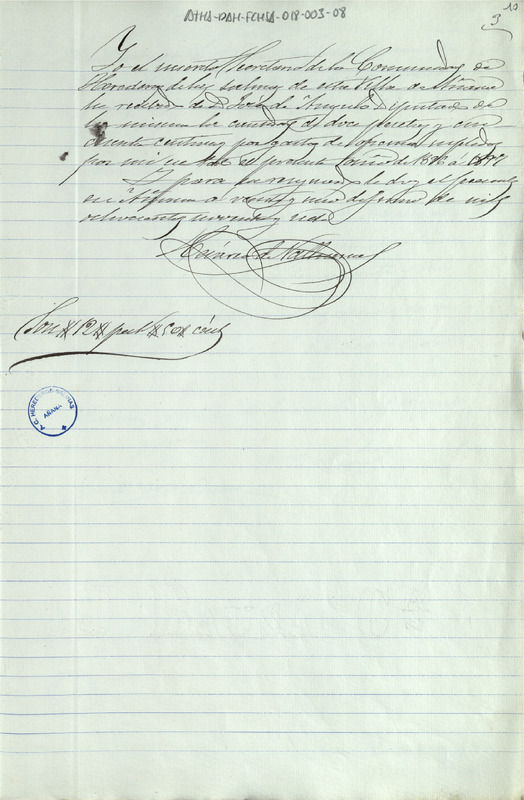 ATHA-DAH-FCHSA-018-003-08
10
3
Yo el infrascrito Secretario de la Comunidad de
Herederos de las Salinas de esta Villa de Añana
he recibido de D. de Angulo Diputado de
la misma la cantidad de doce pesetas y cin
cuenta centimos por gastos de
por mi en el presente año de a 1897
Y para su resguardo le doy el presente
en Añana a veinte y uno de de mil
ochocientos noventa y
de
Son # 12 # pest # 50 # cént
A.C. HEREDEROS SALINAS
AÑANA